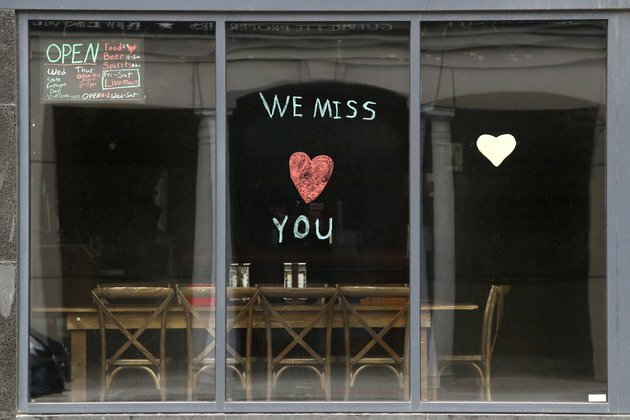 OPEN
Food
Beer
Spirits
Wed
State
Employee
Day
Thur
Fri-Sat
Live Music
OPEN
Wed-Sat
WE MISS
YOU